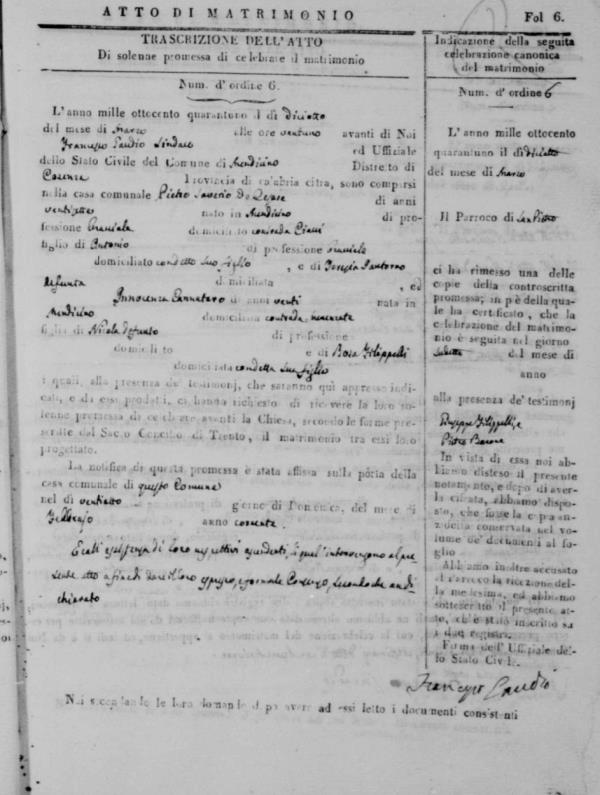 ATTO DI MATRIMONIO
Fol 6.
TRASCRIZIONE DELL'ATTO
Di solenne promessa di celebrare il matrimonio
Num. d'ordine 6.
L'anno mille ottocento quarantuno il dì diciotto
del mese di Marzo alle ore ventuno avanti di Noi
Francesco Gaudio Sindaco ed Uffiziale
dello Stato Civile del Comune di Mendicino Distretto di
Cosenza Provincia di calabria citra, sono comparsi
nella casa comunale Pietro Saverio de di anni
nato in Mendicino di pro-
fessione domiciliato contrada
figlio di Antonio di professione
domiciliato condetto suo figlio, e di Teresia Santorno
defunta domiciliata, ed
Innocenza Cannataro di anni venti nata in
Mendicino domiciliata contrada
figlia di Nicola defunto di professione
domiciliato e di Rosa Filippelli
domiciliata condetta sua figlia
i quali, alla presenza de' testimonj, che saranno quì appresso indi-
cati, e da essi prodotti, ci hanno richiesto di ricevere la loro so-
lenne promessa di celebrare avanti la Chiesa, secondo le forme pre-
scritte dal Sacro Concilio di Trento, il matrimonio tra essi loro
progettato.
La notifica di questa promessa è stata affissa sulla porta della
casa comunale di questo Comune
nel dì ventiotto giorno di Domenica, del mese di
Febbrajo anno corrente.
di loro rispettivi ascendenti, i quali intervengono al pre-
sente atto affine di dare il loro espresso, e formale Consenso, secondo che han di-
chiarato
Noi secondando le loro domande dopo avere ad essi letto i documenti consistenti
Indicazione della seguita
celebrazione canonica
del matrimonio
Num. d'ordine 6
L'anno mille ottocento
quarantuno il dì diciotto
del mese di Marzo
Il Parroco di San Pietro
ci ha rimesso una delle
copie della controscritta
promessa; in piè della qua-
le ha certificato, che la
celebrazione del matrimo-
nio è seguita nel giorno
sudetto del mese di
anno
alla presenza de' testimonj
Giuseppe Filippelli, e
Pietro Barone
In vista di essa noi ab-
biamo disteso il presente
notamento, e dopo di aver-
la cifrata, abbiamo dispo-
sto, che fosse la copia an-
zidetta conservata nel vo-
lume de' documenti al fo-
glio
Abbiamo inoltre accusato
al Parroco la ricezione del-
la medesima, ed abbiamo
sottoscritto il presente at-
to, ch'è stato inscritto su
i due registri.
Firma dell' Uffiziale del-
lo Stato Civile.
Francesco Gaudio